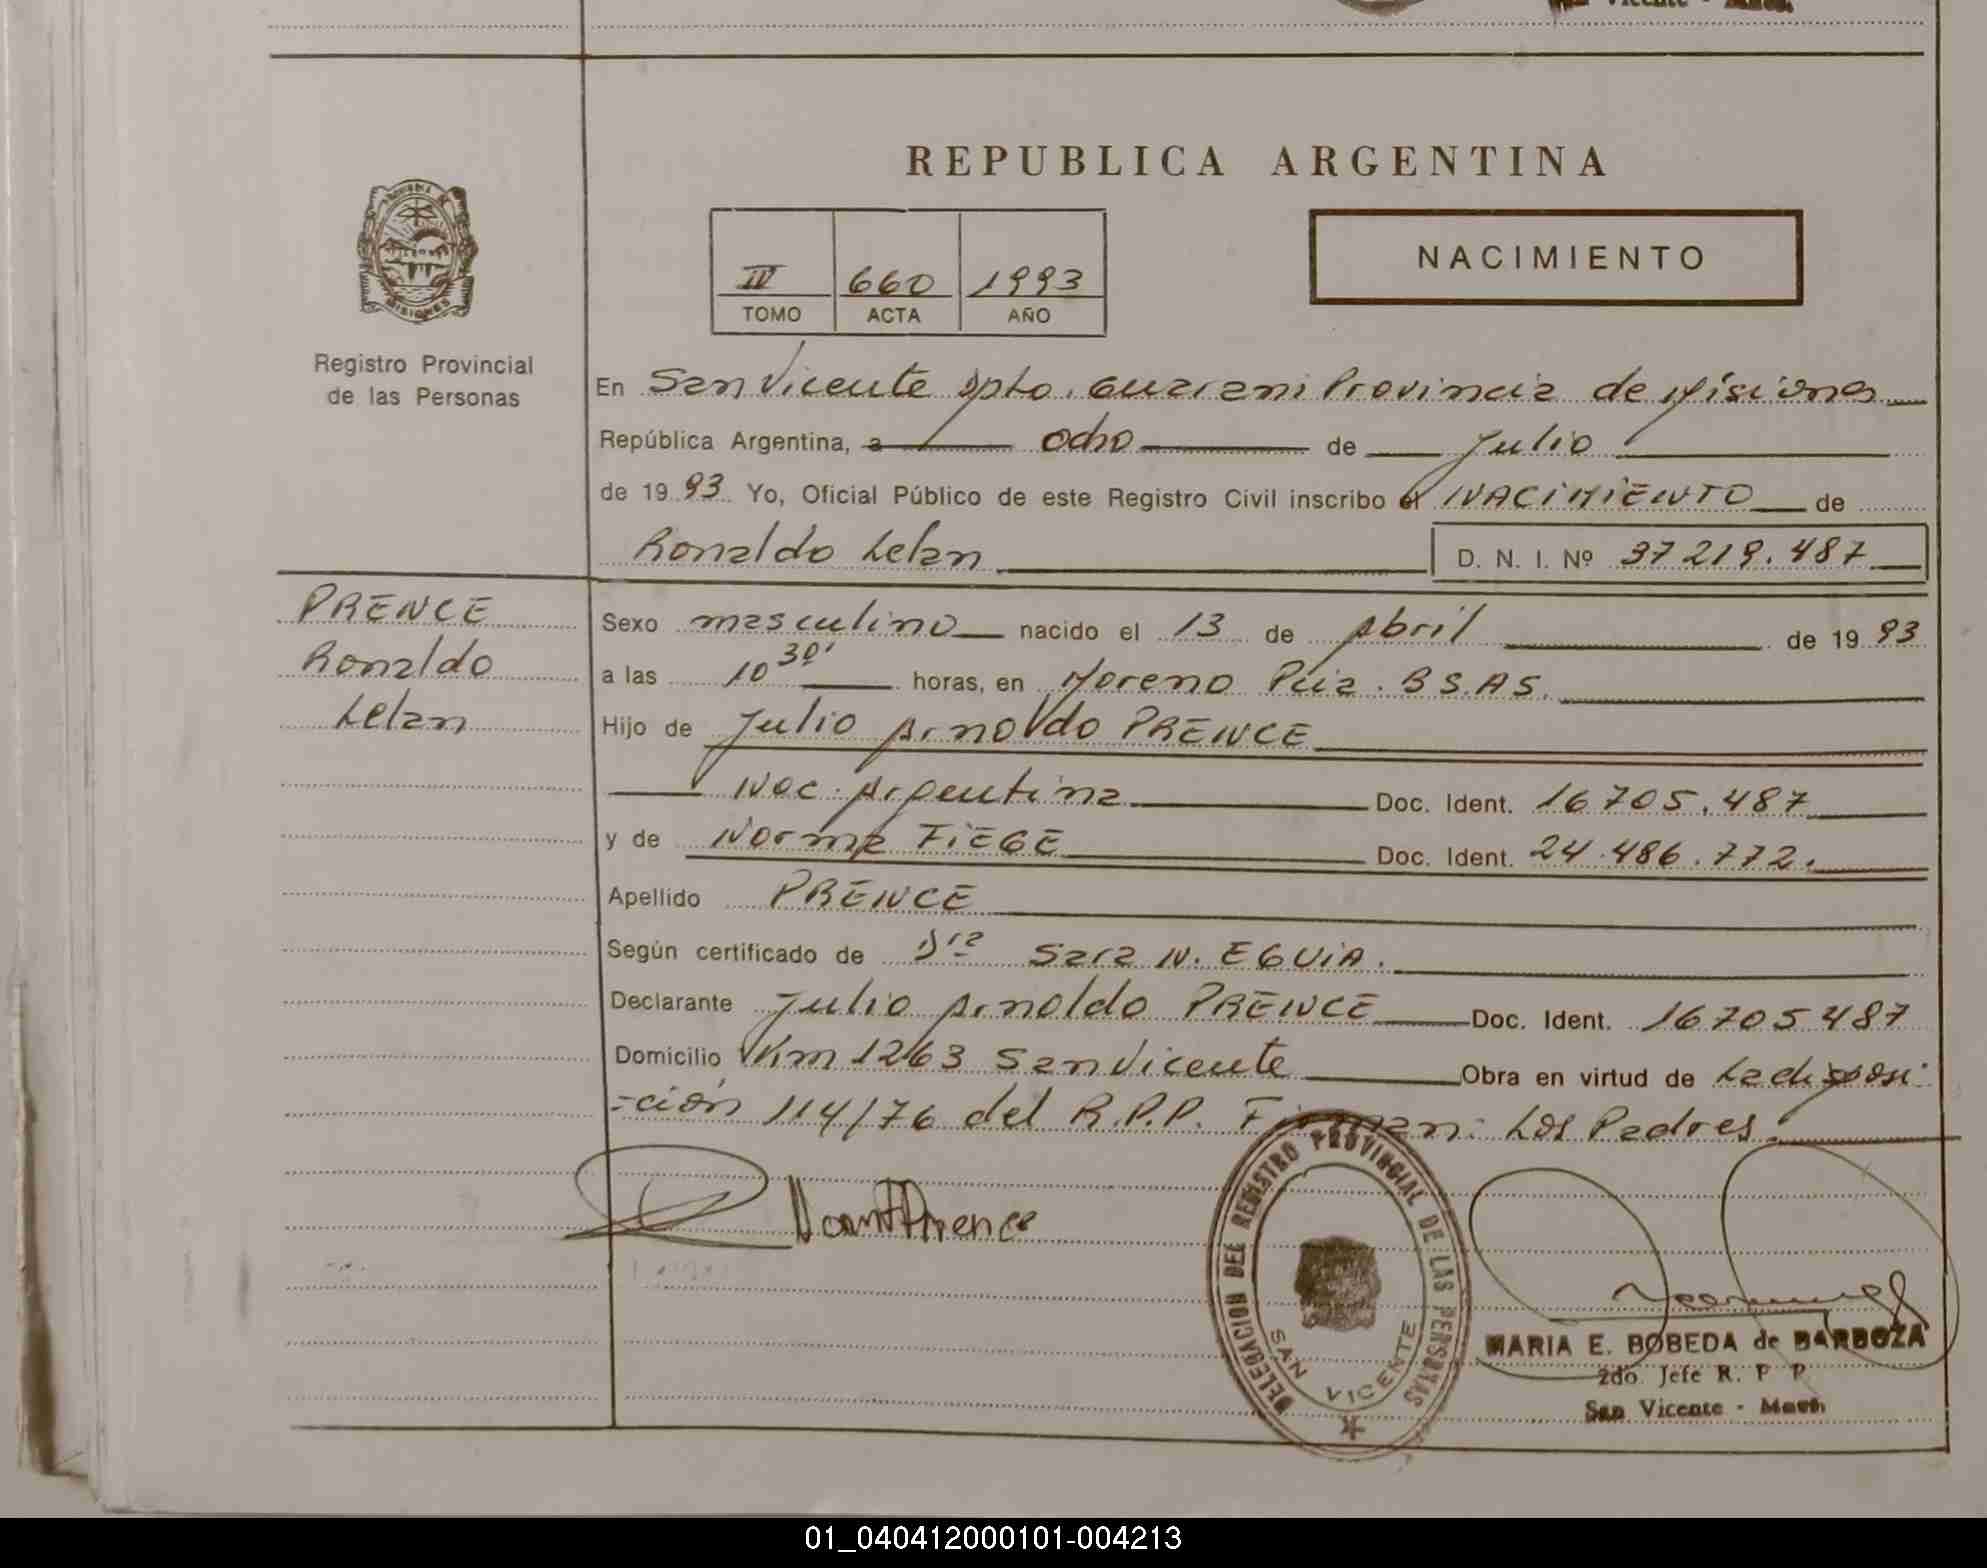 San Vicente - Mnes.
REPUBLICA ARGENTINA
NACIMIENTO
IV 660 1993
TOMO ACTA AÑO
MISIONES
Registro Provincial
de las Personas
En San Vicente Dpto. Guarani Provincia de Misiones
República Argentina, a ocho de Julio
de 1993 Yo, Oficial Público de este Registro Civil inscribo el NACIMIENTO de
Ronaldo Lelan D. N. I. Nº 37 219.487
PRENCE
Ronaldo
Lelan
Sexo masculino nacido el 13 de Abril de 1993
a las 10 30' horas, en Moreno Pcia. BS.AS.
Hijo de Julio Arnoldo PRENCE
Nac. Argentina Doc. Ident. 16705.487
y de Norma FIEGE Doc. Ident. 24.486.772.
Apellido PRENCE
Según certificado de Dra Sara N. EGUIA.
Declarante Julio Arnoldo PRENCE Doc. Ident. 16705487
Domicilio Km 1263 San Vicente Obra en virtud de La disposi-
=ción 114/76 del R.P.P. Firman: Los Padres.
Prence
DELEGACION DEL REGISTRO PROVINCIAL DE LAS PERSONAS
SAN VICENTE
MARIA E. BOBEDA de BARBOZA
2do. Jefe R. P P
San Vicente -
01_040412000101-004213